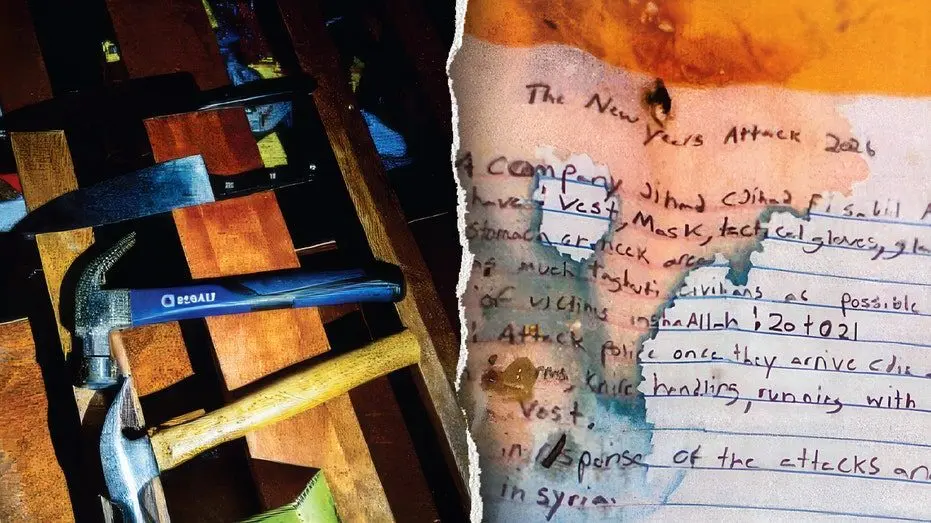 The New
Years Attack 2026
A company Jihad (Jihad Fi sabil
have: Vest, Mask, tactical gloves,
stomach or neck area
much taghuti civilians as possible
of victims inshaAllah : 20 to 21
Attack police once they arrive
Knife handling, running with
Vest.
in response of the attacks
in Syria.